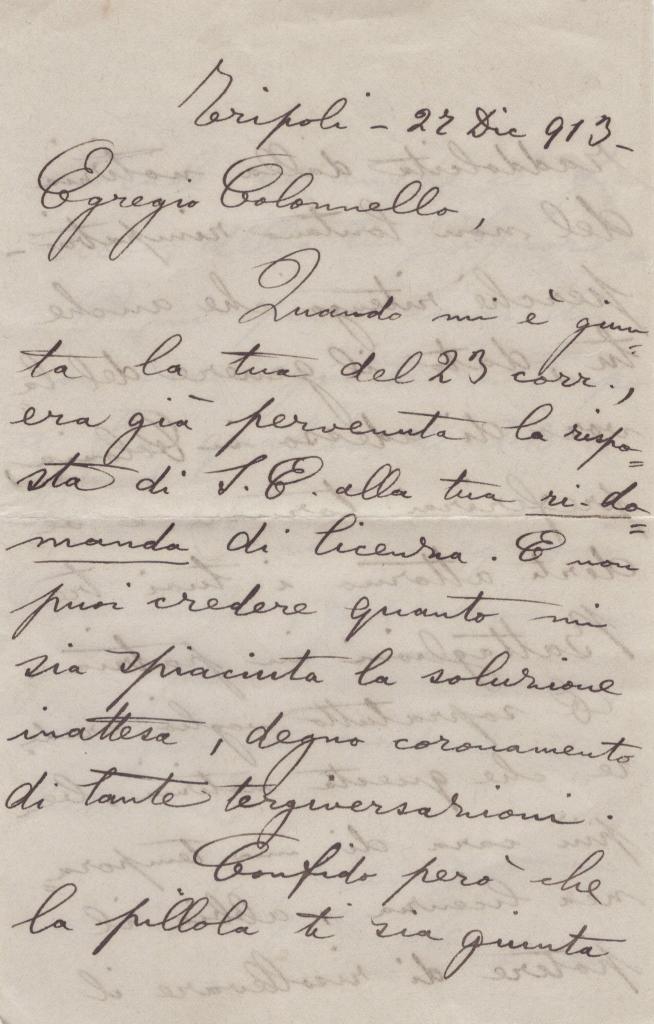 Tripoli - 27 Dic 913 -
Egregio Colonnello,
Quando mi è giun=
ta la tua del 23 corr.,
era già pervenuta la rispo=
sta di S.E. alla tua ri-do=
manda di licenza. E non
puoi credere quanto mi
sia spiaciuta la soluzione
inattesa, degno coronamento
di tante tergiversazioni.
Confido però che
la pillola ti sia giunta